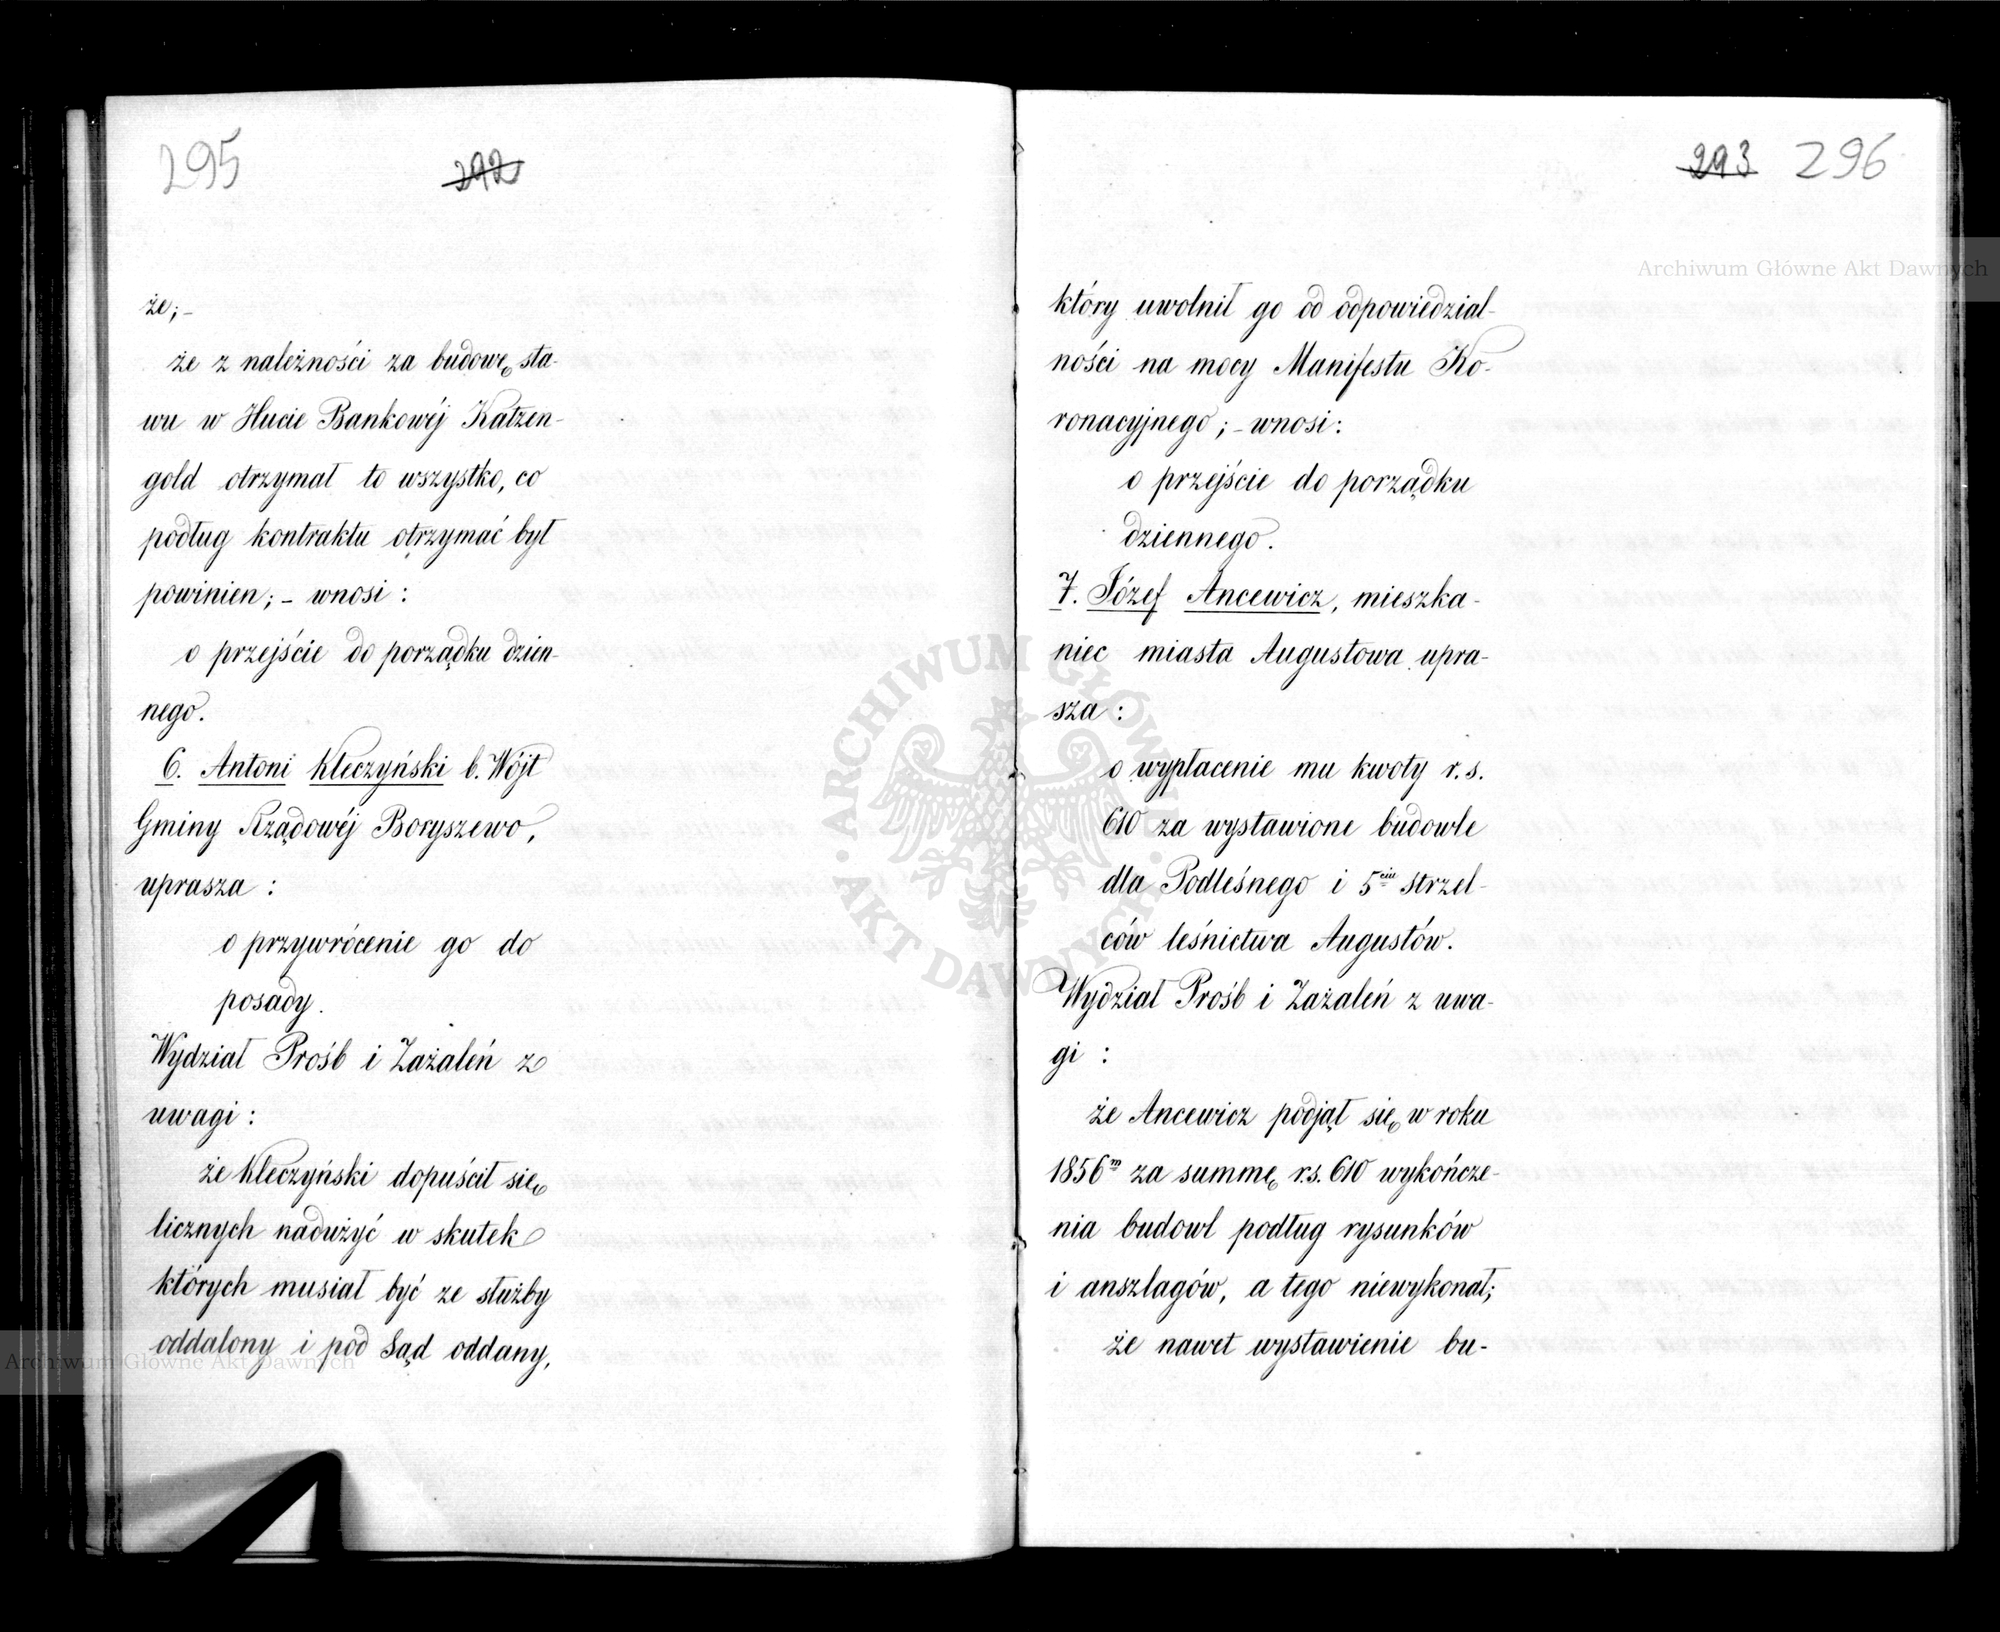 295
292
że;-
że z należności za budowę sta-
wu w Hucie Bankowéj Katzen-
gold otrzymał to wszystko, co
podług kontraktu otrzymać był
powinien; - wnosi :
o przejście do porządku dzien-
nego.
6. Antoni Kleczyński b. Wójt
Gminy Rządowéj Boryszewo,
uprasza :
o przywrócenie go do
posady.
Wydział Prośb i Zażaleń z
uwagi :
że Kleczyński dopuścił się
licznych nadużyć w skutek
których musiał być ze służby
oddalony i pod Sąd oddany,
Archiwum Główne Akt Dawnych
293 296
Archiwum Główne Akt Dawnych
który uwolnił go od odpowiedzial-
ności na mocy Manifestu Ko-
ronacyjnego ; - wnosi :
o przejście do porządku
dziennego.
7. Józef Ancewicz, mieszka-
niec miasta Augustowa upra-
sza :
o wypłacenie mu kwoty r. s.
610 za wystawione budowle
dla Podleśnego i 5ciu strzel-
ców leśnictwa Augustów.
Wydział Prośb i Zażaleń z uwa-
gi :
że Ancewicz podjął się w roku
1856m za summę r.s. 610 wykończe-
nia budowl podług rysunków
i anszlagów, a tego niewykonał;
że nawet wystawienie bu-
ARCHIWUM GŁÓWNE AKT DAWNYCH